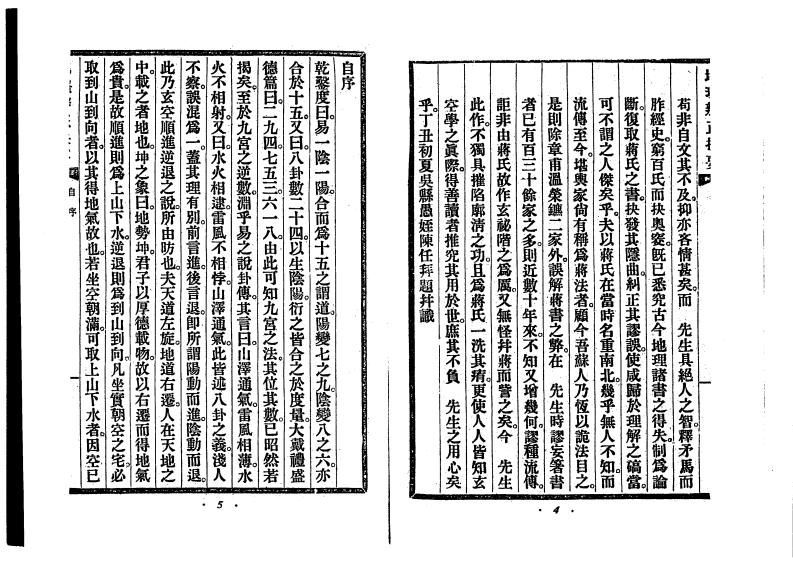 苟非自文其不及抑亦吝情甚矣而　先生具絕人之智釋矛馬而
胙經史窮百氏而抉奧窔既已悉究古今地理諸書之得失制為論
斷復取蔣氏之書抉發其隱曲糾正其謬誤使咸歸於理解之碻當
可不謂之人傑矣乎夫以蔣氏在當時名重南北幾乎無人不知而
流傳至今堪輿家尙有稱為蔣法者顧今吾蘇人乃恆以詭法目之
是則除章甫溫榮鑣二家外誤解蔣書之弊在　先生時謬妄箸書
者已有百三十餘家之多則近數十年來不知又增幾何謬種流傳
詎非由蔣氏故作玄祕階之為厲又無怪幷蔣而訾之矣今　先生
此作不獨具摧陷廓淸之功且為蔣氏一洗其瘠更使人人皆知玄
空學之眞際得善讀者推究其用於世庶其不負　先生之用心矣
乎丁丑初夏吳縣愚姪陳任拜題幷識
· 4 ·
自序
乾鑿度曰易一陰一陽合而為十五之謂道陽變七之九陰變八之六亦
合於十五又曰八卦數二十四以生陰陽衍之皆合之於度量大戴禮盛
德篇曰二九四七五三六一八由此可知九宮之法其位其數已昭然若
揭矣至於九宮之逆數淵乎易之說卦傳其言曰山澤通氣雷風相薄水
火不相射又曰水火相逮雷風不相悖山澤通氣此皆述八卦之義淺人
不察誤混為一蓋其理有別前言進後言退卽所謂陽動而進陰動而退
此乃玄空順進逆退之說所由昉也夫天道左旋地道右遷人在天地之
中載之者地也坤之象曰地勢坤君子以厚德載物故以右遷而得地氣
為貴是故順進則為上山下水逆退則為到山到向凡坐實朝空之宅必
取到山到向者以其得地氣故也若坐空朝滿可取上山下水者因空已
自序
· 5 ·